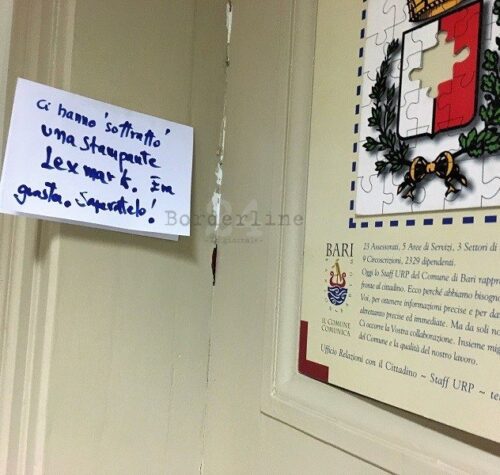 Ci hanno 'sottratto'
una stampante
Lexmark. Era
guasta. Sapevatelo!
Borderline
24
- Il giornale -
BARI
IL COMUNE
COMUNICA
23 Assessorati, 5 Aree di Servizi, 3 Settori di
9 Circoscrizioni, 2329 dipendenti.
Oggi lo Staff URP del Comune di Bari rappr
fronte al cittadino. Ecco perché abbiamo bisogn
Voi, per ottenere informazioni precise e per dat
altrettanto precise ed immediate. Ma da soli no
Ci occorre la Vostra collaborazione. Insieme mig
del Comune e la qualità del nostro lavoro.
Ufficio Relazioni con il Cittadino ~ Staff URP ~ te